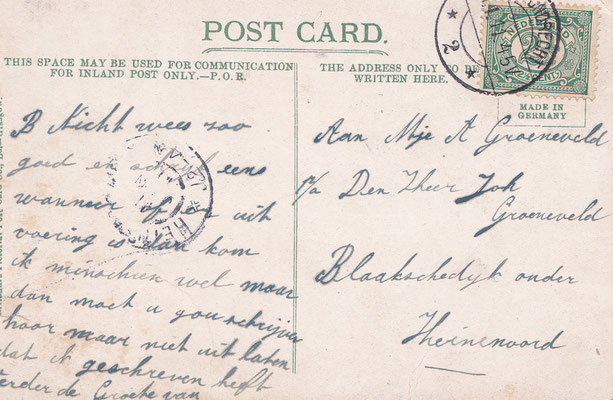 POST CARD.
THIS SPACE MAY BE USED FOR COMMUNICATION
FOR INLAND POST ONLY.—P.O.R.
THE ADDRESS ONLY TO BE
WRITTEN HERE.
NEDERLAND
2½ CENT
MADE IN
GERMANY
B Nicht wees zoo
goed en schryf eens
wanneer of er uit
voering is dan kom
ik minschien wel maar
dan moet u gou schrijven
hoor maar niet uit laten
dat ik geschreven heeft
verder de Groete van
Aan Mje A Groeneveld
p/a Den Heer Joh
Groeneveld
Blaakschedyk onder
Heinenoord